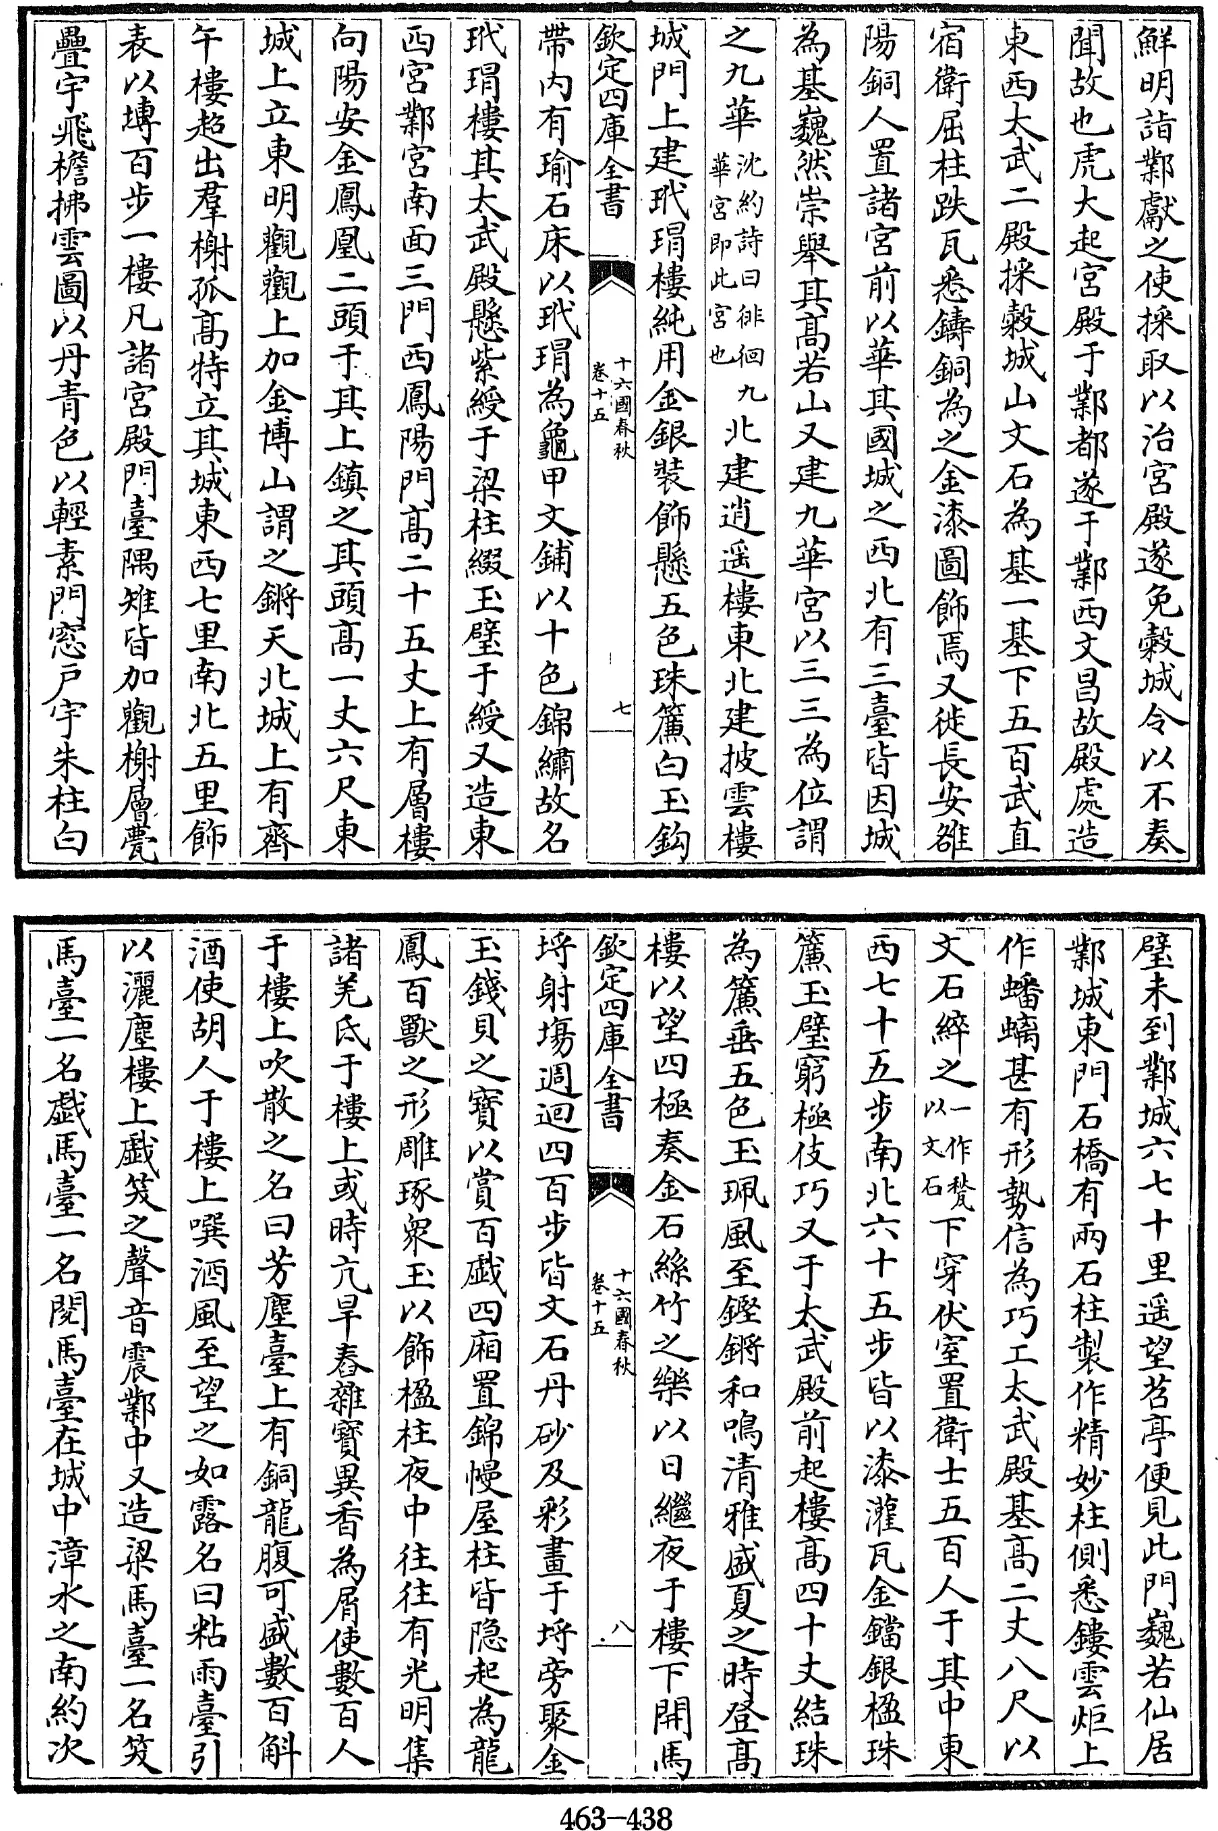 鮮明詣鄴獻之使採取以治宮殿遂免穀城令以不奏
聞故也虎大起宮殿于鄴都遂于鄴西文昌故殿處造
東西太武二殿採穀城山文石為基一基下五百武直
宿衛屈柱跌瓦悉鑄銅為之金漆圖飾焉又徙長安雒
陽銅人置諸宮前以華其國城之西北有三臺皆因城
為基巍然崇舉其髙若山又建九華宮以三三為位謂
之九華沈約詩曰徘徊九華宮即此宮也北建逍遥樓東北建披雲樓
城門上建玳瑁樓純用金銀裝飾懸五色珠簾白玉鈎
欽定四庫全書
十六國春秋
卷十五
七
帶内有瑜石床以玳瑁為龜甲文鋪以十色錦繡故名
玳瑁樓其太武殿懸紫綬于梁柱綴玉璧于綬又造東
西宮鄴宮南面三門西鳳陽門髙二十五丈上有層樓
向陽安金鳳凰二頭于其上鎮之其頭髙一丈六尺東
城上立東明觀觀上加金博山謂之鏘天北城上有齊
午樓超出羣榭孤髙特立其城東西七里南北五里飾
表以塼百步一樓凡諸宮殿門臺隅雉皆加觀榭層甍
疊宇飛檐拂雲圖以丹青色以輕素門窓戸宇朱柱白
壁未到鄴城六七十里遥望苕亭便見此門巍若仙居
鄴城東門石橋有兩石柱製作精妙柱側悉鏤雲炬上
作蟠螭甚有形勢信為巧工太武殿基髙二丈八尺以
文石綷之一作甃以文石下穿伏室置衛士五百人于其中東
西七十五步南北六十五步皆以漆灌瓦金鐺銀楹珠
簾玉璧窮極伎巧又于太武殿前起樓髙四十丈結珠
為簾垂五色玉珮風至鏗鏘和鳴清雅盛夏之時登髙
樓以望四極奏金石絲竹之樂以日繼夜于樓下開馬
欽定四庫全書
十六國春秋
卷十五
八
埒射塲週迴四百步皆文石丹砂及彩畫于埒旁聚金
玉錢貝之寶以賞百戯四廂置錦幔屋柱皆隐起為龍
鳳百獸之形雕琢衆玉以飾楹柱夜中往往有光明集
諸羌氐于樓上或時亢旱舂雜寶異香為屑使數百人
于樓上吹散之名曰芳塵臺上有銅龍腹可盛數百斛
酒使胡人于樓上噀酒風至望之如露名曰粘雨臺引
以灑塵樓上戯笑之聲音震鄴中又造梁馬臺一名笑
馬臺一名戯馬臺一名閱馬臺在城中漳水之南約次
463-438